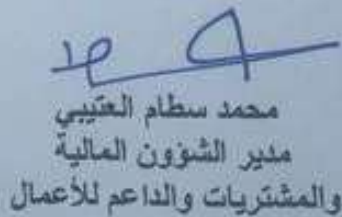 محمد سطام العتيبي
مدير الشؤون المالية
والمشتريات والداعم للأعمال